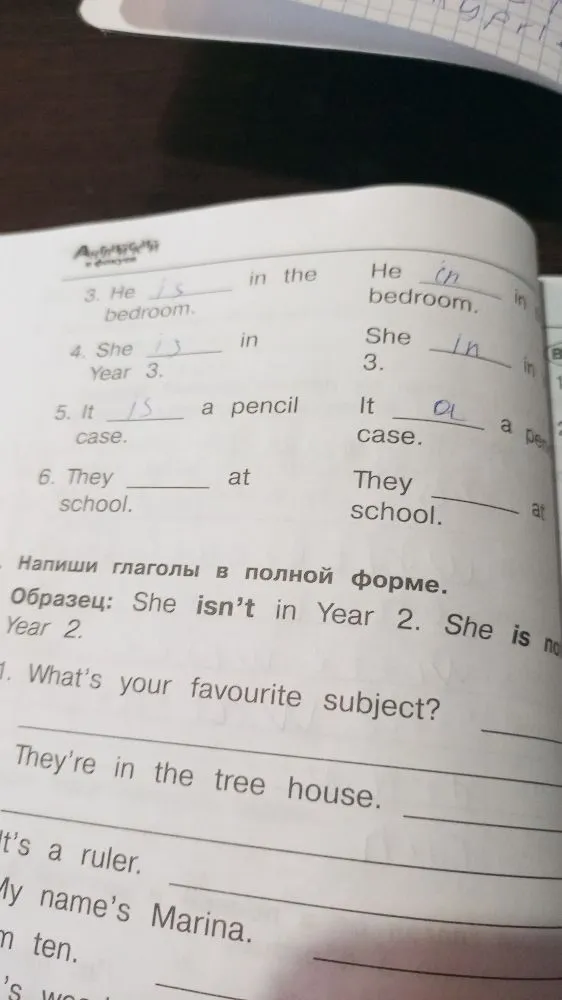 Английский
в фокусе
3. He is in the He in in
bedroom. bedroom.
4. She is in She in in
Year 3. 3.
5. It is a pencil It a a pen
case. case.
6. They at They at
school. school.
Напиши глаголы в полной форме.
Образец: She isn't in Year 2. She is no
Year 2.
1. What's your favourite subject?
They're in the tree house.
It's a ruler.
My name's Marina.
m ten.
's